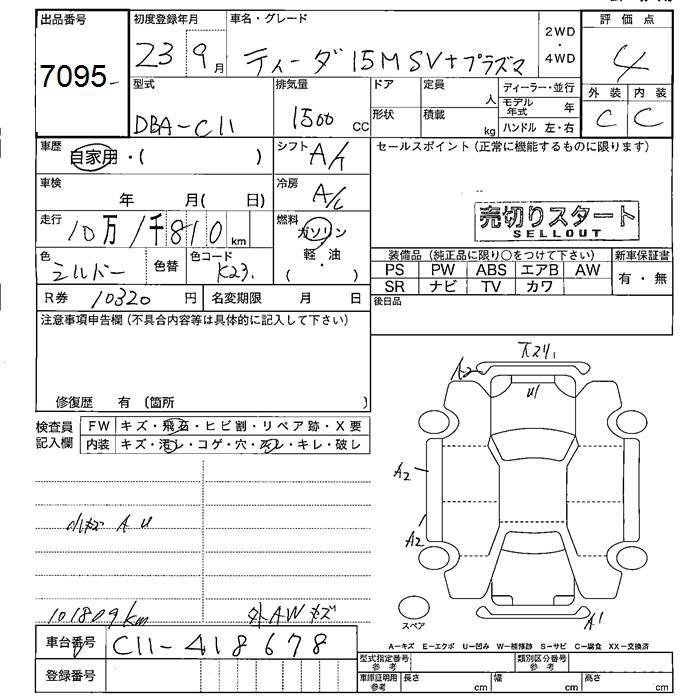 出品番号 初度登録年月 車名・グレード 2WD・4WD 評価点
7095 23 9月 ティーダ 15M SV+プラズマ 4
型式 排気量 ドア 定員 人 ディーラー・並行 外装 内装
DBA-C11 1500 CC 形状 積載 kg モデル年式 年 C C
ハンドル 左・右
車歴 自家用・( ) シフト A/T セールスポイント (正常に機能するものに限ります)
車検 年 月( 日) 冷房 A/C
走行 10万1千810km 燃料 ガソリン 売切りスタート
軽・油 SELLOUT
( )
色 シルバー 色替 色コード K23 装備品 (純正品に限り○をつけて下さい) 新車保証書
PS PW ABS エアB AW 有・無
SR ナビ TV カワ
R券 10320円 名変期限 月 日 後日品
注意事項申告欄 (不具合内容等は具体的に記入して下さい)
修復歴 有 〔箇所 〕
検査員記入欄 FW キズ・飛石・ヒビ割・リペア跡・X要
内装 キズ・汚レ・コゲ・穴・スレ・キレ・破レ
A2
U1
A2
A2
小キズ A U
101809km 外AWキズ
スペア
A1
車台番号 C11-418678
A-キズ E-エクボ U-凹み W-補修跡 S-サビ C-腐食 XX-交換済
型式指定番号 参考 類別区分番号 参考
登録番号 車庫証明用 参考 長さ cm 幅 cm 高さ cm